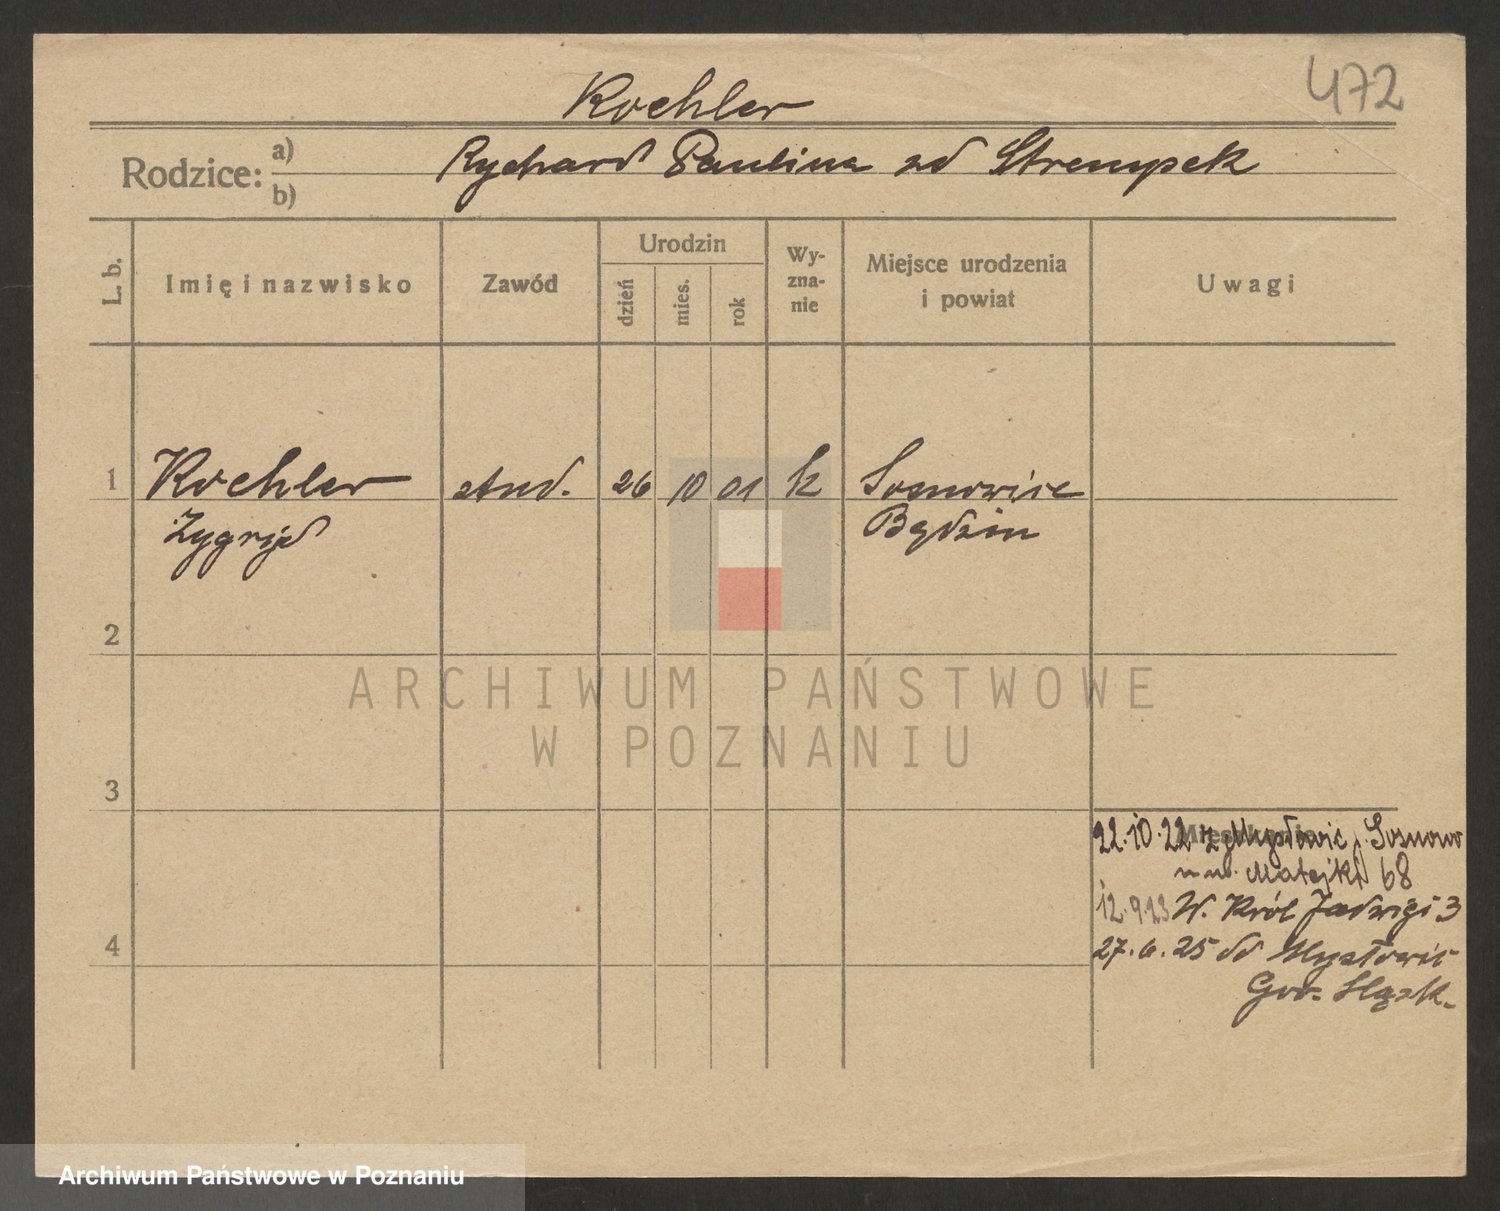 472
Koehler
Rodzice: a) b)
Rychard Paulina zd Strempek
L. b.
Imię i nazwisko
Zawód
Urodzin
dzień
mies.
rok
Wy-
zna-
nie
Miejsce urodzenia
i powiat
Uwagi
1 Koehler stud. 26 10 01 k Sosnowice
Zygfrjd Będzin
2
ARCHIWUM PAŃSTWOWE
W POZNANIU
3
22.10.22 z Mysłowic Sosnow
ul. Matejki 68
12.9.23 W. Król Jadwigi 3
4
27.6.25 do Mysłowic
Gór. Śląsk.
Archiwum Państwowe w Poznaniu